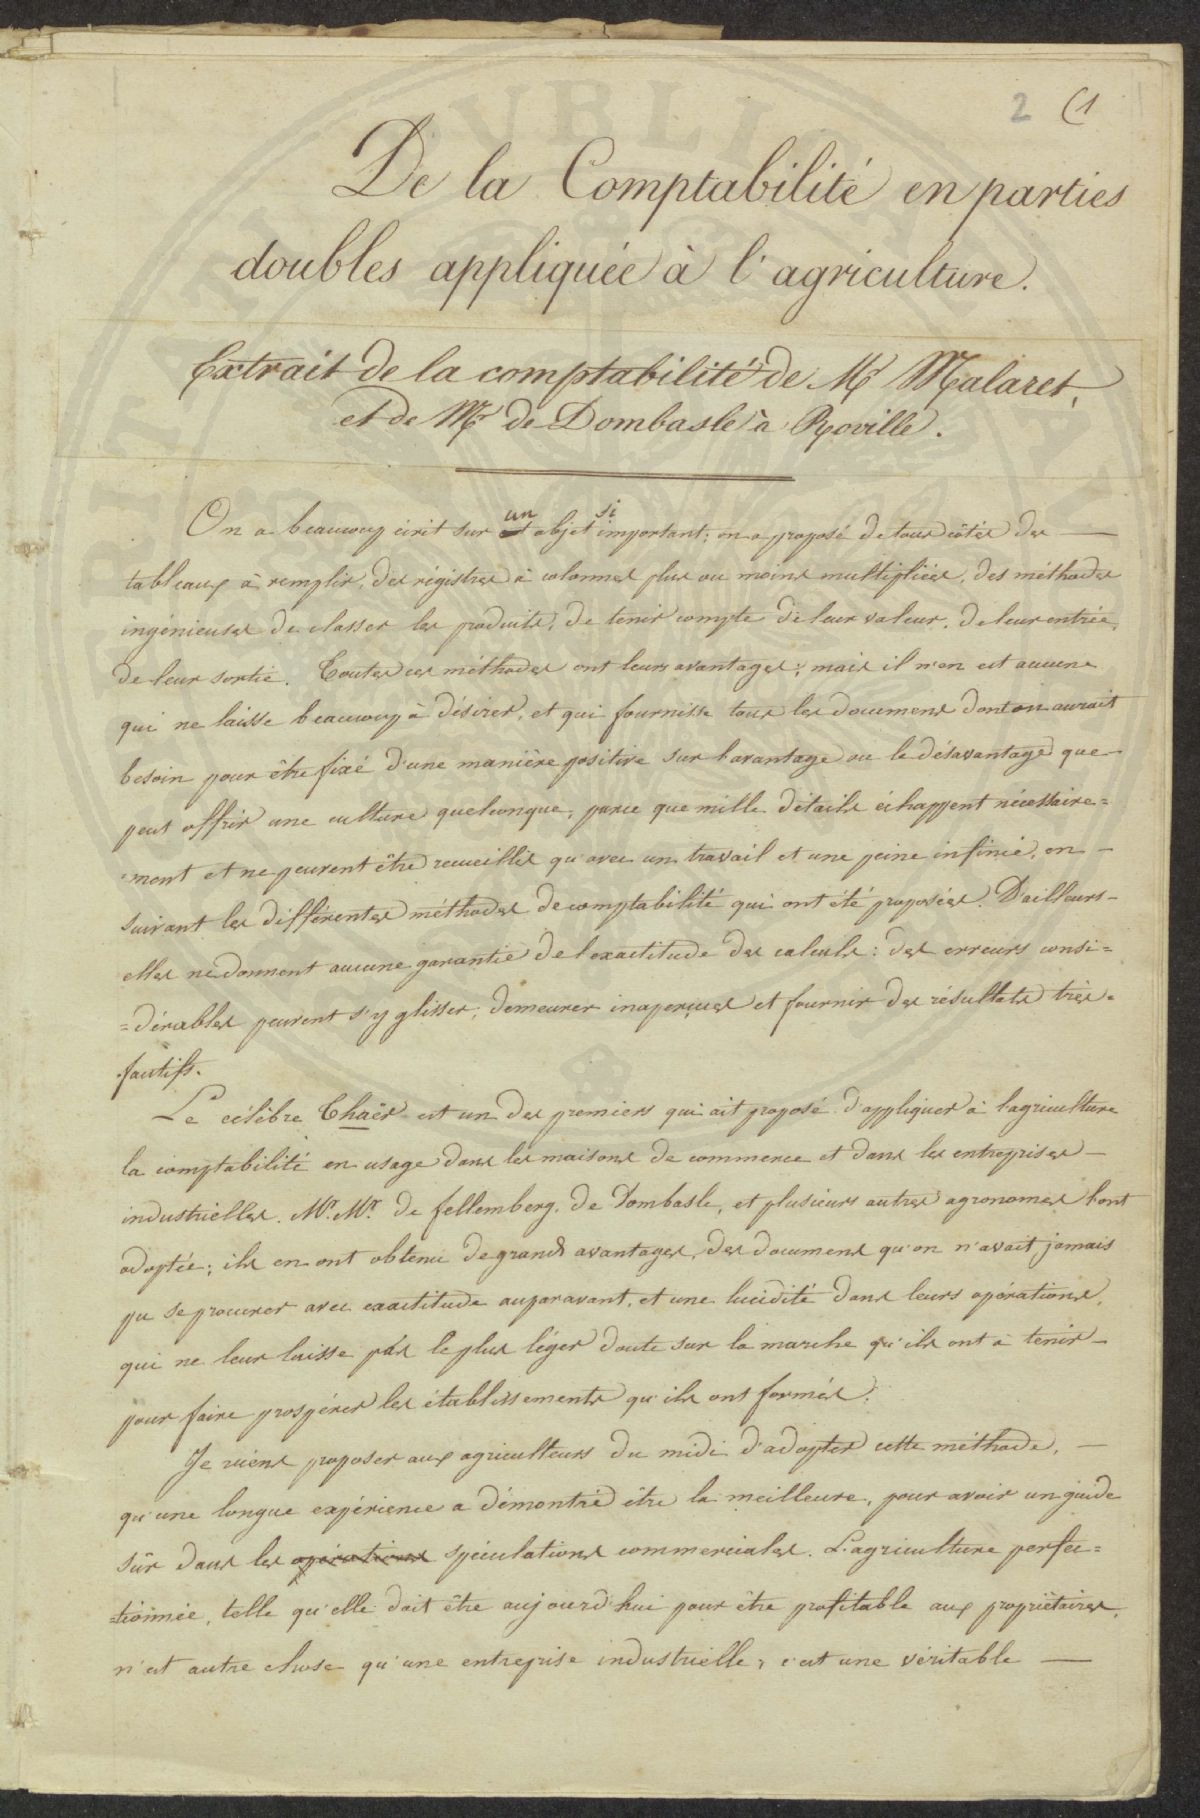 2 (1
De la Comptabilité en parties
doubles appliquée à l'agriculture.
Extrait de la comptabilité de Mr Malaret,
et de Mr de Dombasle à Roville.
On a beaucoup écrit sur un objet si important; on a proposé de tous côtés des
tableaux à remplir, des régistres à colonnes plus ou moins multipliées, des méthodes
ingénieuses de classer les produits, de tenir compte de leur valeur, de leur entrée,
de leur sortie. Toutes ces méthodes ont leurs avantages; mais il n'en est aucune
qui ne laisse beaucoup à désirer, et qui fournisse tous les documens dont on aurait
besoin pour être fixé d'une manière positive sur l'avantage ou le désavantage que
peut offrir une culture quelconque, parce que mille détails échappent nécessaire=
ment et ne peuvent être recueillis qu'avec un travail et une peine infinie, en
suivant les différentes méthodes de comptabilité qui ont été proposées. D'ailleurs
elles ne donnent aucune garantie de l'exactitude des calculs: des erreurs consi=
=dérables peuvent s'y glisser, demeurer inaperçues et fournir des résultats très-
fautifs.
Le célèbre Thaër est un des premiers qui ait proposé d'appliquer à l'agriculture
la comptabilité en usage dans les maisons de commerce et dans les entreprises
industrielles. Mr. Mr. de fellemberg, de Dombasle, et plusieurs autres agronomes l'ont
adoptée; ils en ont obtenu de grands avantages, des documens qu'on n'avait jamais
pu se procurer avec exactitude auparavant, et une lucidité dans leurs opérations,
qui ne leur laisse pas le plus léger doute sur la marche qu'ils ont à tenir
pour faire prospérer les établissements qu'ils ont formés.
Je viens proposer aux agriculteurs du midi d'adopter cette méthode,
qu'une longue expérience a démontré être la meilleure, pour avoir un guide
sûr dans les opérations spéculations commerciales. L'agriculture perfec=
=tionnée, telle qu'elle doit être aujourd'hui pour être profitable aux propriétaires,
n'est autre chose qu'une entreprise industrielle, c'est une véritable